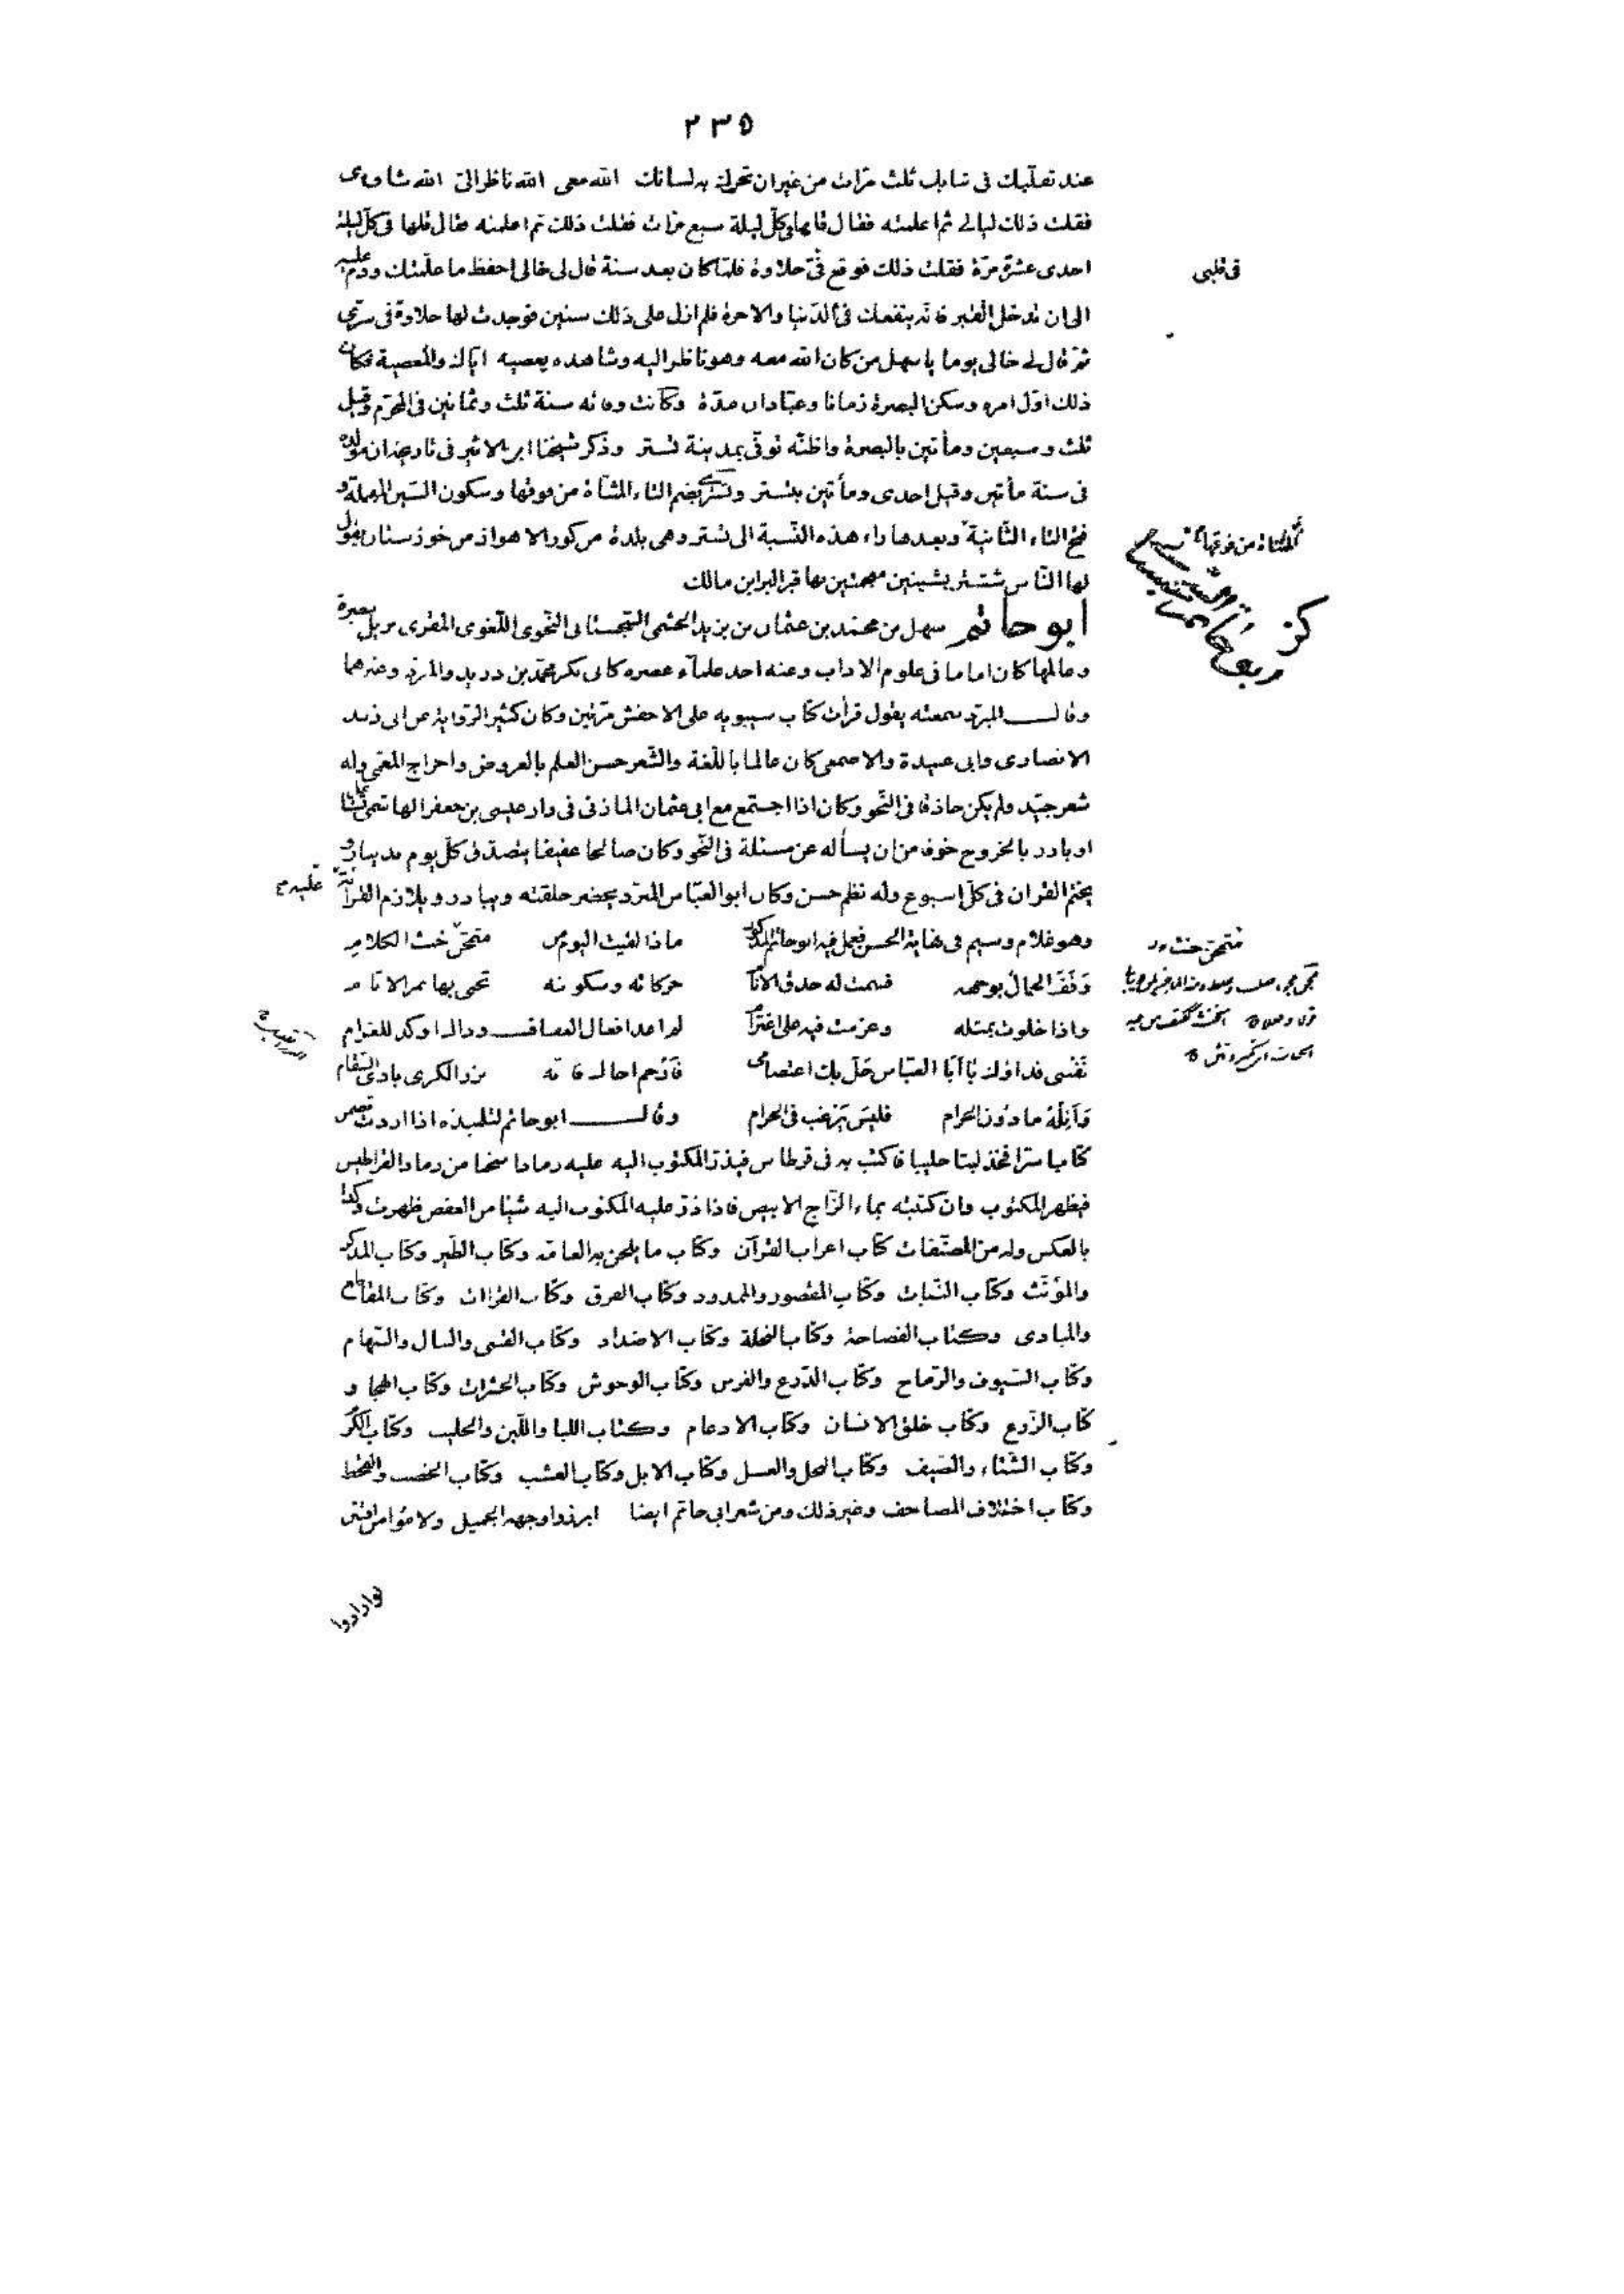 ٢٣٥
عند تقلّبك فى ثيابك ثلث مرّات من غيران تحرك به لسانك الله معى الله ناظر الىّ الله شاهدى
فقلت ذلك ليالى ثم اعلمته فقال قلها فى كلّ ليلة سبع مرّات فقلت ذلك ثم اعلمته فقال قلها فى كلّ ليلة
احدى عشرة مرّة فقلت ذلك فوقع فى حلاوة فلمّا كان بعد سنة قال لى خالى احفظ ما علّمتك ودم عليه
فى قلبى
الى ان تدخل القبر فانّه ينفعك فى الدّنيا والاخرة فلم ازل على ذلك سنين فوجدت لها حلاوة فى سرّى
ثمّ قال لى خالى يوما يا سهل من كان الله معه وهو ناظر اليه وشاهده يعصيه ايّاك والمعصية فكان
ذلك اوّل امره وسكن البصرة زمانا وعبّادان مدّة وكانت وفاته سنة ثلث وثمانين فى المحرّم وقيل
ثلث وسبعين ومأتين بالبصرة واظنّه توفّى بمدينة تستر وذكر شيخنا ابن الاثير فى تاريخه ان مولده
فى سنة مأتين وقيل احدى ومأتين بتستر وتسترى بضم التاء المثنّاة من فوقها وسكون السّين المهملة و
فتح التاء الثّانية وبعدها راء هذه النّسبة الى تستر وهى بلدة من كور الاهواز من خوزستان يقول
المثنّاة من فوقها
لها النّاس ششتر بشينين معجمتين بها قبر البراء بن مالك
ابو حاتم سهل بن محمّد بن عثمان بن يزيد الجشمى السّجستانى النّحوى اللّغوى المقرى نزيل بصرة
وعالمها كان اماما فى علوم الاداب وعنه اخذ علماء عصره كابى بكر محمّد بن دريد والمبرّد وغيرهما
وقال المبرّد سمعته يقول قرأت كتاب سيبويه على الاخفش مرّتين وكان كثير الرّواية عن ابى زيد
الانصارى وابى عبيدة والاصمعى كان عالما باللّغة والشّعر حسن العلم بالعروض واخراج المعمّى وله
شعر جيّد ولم يكن حاذقا فى النّحو وكان اذا اجتمع مع ابى عثمان المازنى فى دار عيسى بن جعفر الهاشمى تشاغل
او بادر بالخروج خوفا من ان يسأله عن مسئلة فى النّحو وكان صالحا عفيفا يتصدّق فى كلّ يوم بدينار و
يختم القران فى كلّ اسبوع وله نظم حسن وكان ابو العبّاس المبرّد يحضر حلقته ويبادر ويلازم القرائة
عليه
وهو غلام وسيم فى نهاية الحسن فعمل فيه ابو حاتم المذكور ماذا لقيت اليوم من متمجّن خنث الكلام
وقف الجمال بوجهه فسمت له حدق الانام حركاته وسكونه تجنى بها ثمر الاثام
واذا خلوت بمثله وعزمت فيه على اغترام لم اعد افعال العفاف وذاك اوكد للغرام
نفسى فداؤك يا ابا العبّاس جلّ بك اعتصامى فارحم اخاك فانّه نزر الكرى بادى السّقام
وانله ما دون الحرام فليس يرغب فى الحرام وقال ابو حاتم لتلميذه اذا اردت تضمن
كتابا سرّا فخذ لبنا حليبا فاكتب به فى قرطاس فيذرّ المكتوب اليه عليه رمادا سخنا من رماد القراطيس
فيظهر المكتوب وان كتبته بماء الزّاج الابيض فاذا ذرّ عليه المكتوب اليه شيئا من العفص ظهرت وكذا
بالعكس وله من المصنّفات كتاب اعراب القرآن وكتاب ما يلحن به العامّة وكتاب الطّير وكتاب المذكر
والمؤنّث وكتاب النّبات وكتاب المقصور والممدود وكتاب الفرق وكتاب القراات وكتاب المقاطع
والمبادى وكتاب الفصاحة وكتاب النخلة وكتاب الاضداد وكتاب القسى والنبال والسّهام
وكتاب السّيوف والرّماح وكتاب الدّرع والفرس وكتاب الوحوش وكتاب الحشرات وكتاب الهجا و
كتاب الزّرع وكتاب خلق الانسان وكتاب الادغام وكتاب اللبا واللّبن والحليب وكتاب الكرم
وكتاب الشّتاء والصّيف وكتاب النحل والعسل وكتاب الابل وكتاب العشب وكتاب الخصب والقحط
وكتاب اختلاف المصاحف وغير ذلك ومن شعر ابى حاتم ايضا ابرزوا وجهه الجميل ولاموا من افتتن
لو ارادوا